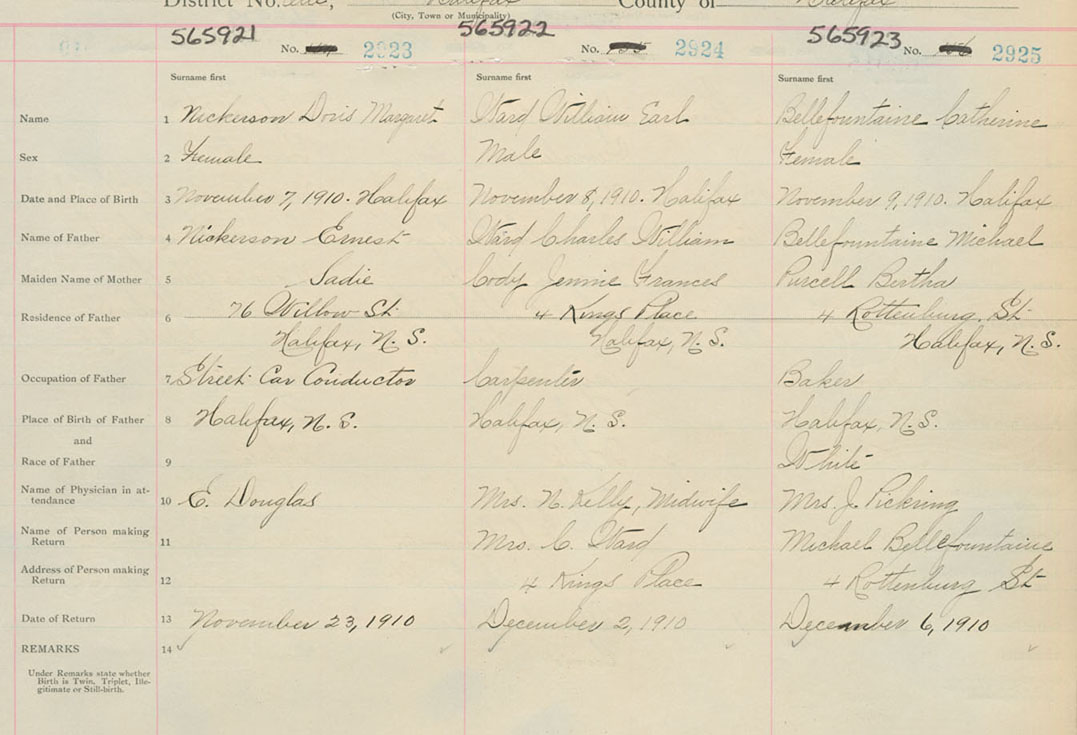 District No. County of
(City, Town or Municipality)
565921 565922 565923
No. 2923 No. 2924 No. 2925
Surname first Surname first Surname first
Name 1 Nickerson Doris Margaret Ward William Earl Bellefountaine Catherine
Sex 2 Female Male Female
Date and Place of Birth 3 November 7, 1910. Halifax November 8, 1910. Halifax November 9, 1910. Halifax
Name of Father 4 Nickerson Ernest Ward Charles William Bellefountaine Michael
Maiden Name of Mother 5 Sadie Cody Jennie Frances Purcell Bertha
Residence of Father 6 76 Willow St. 4 Kings Place 4 Rottenburg, St.
Halifax, N. S. Halifax, N. S. Halifax, N. S.
Occupation of Father 7 Street Car Conductor Carpenter Baker
Place of Birth of Father 8 Halifax, N. S. Halifax, N. S. Halifax, N. S.
and
Race of Father 9 White
Name of Physician in at-
tendance 10 E. Douglas Mrs. N. Kelly, Midwife Mrs. J. Pickring
Name of Person making
Return 11 Mrs. C. Ward Michael Bellefountaine
Address of Person making
Return 12 4 Kings Place 4 Rottenburg St.
Date of Return 13 November 23, 1910 December 2, 1910 December 6, 1910
REMARKS 14
Under Remarks state whether
Birth is Twin, Triplet, Ille-
gitimate or Still-birth.